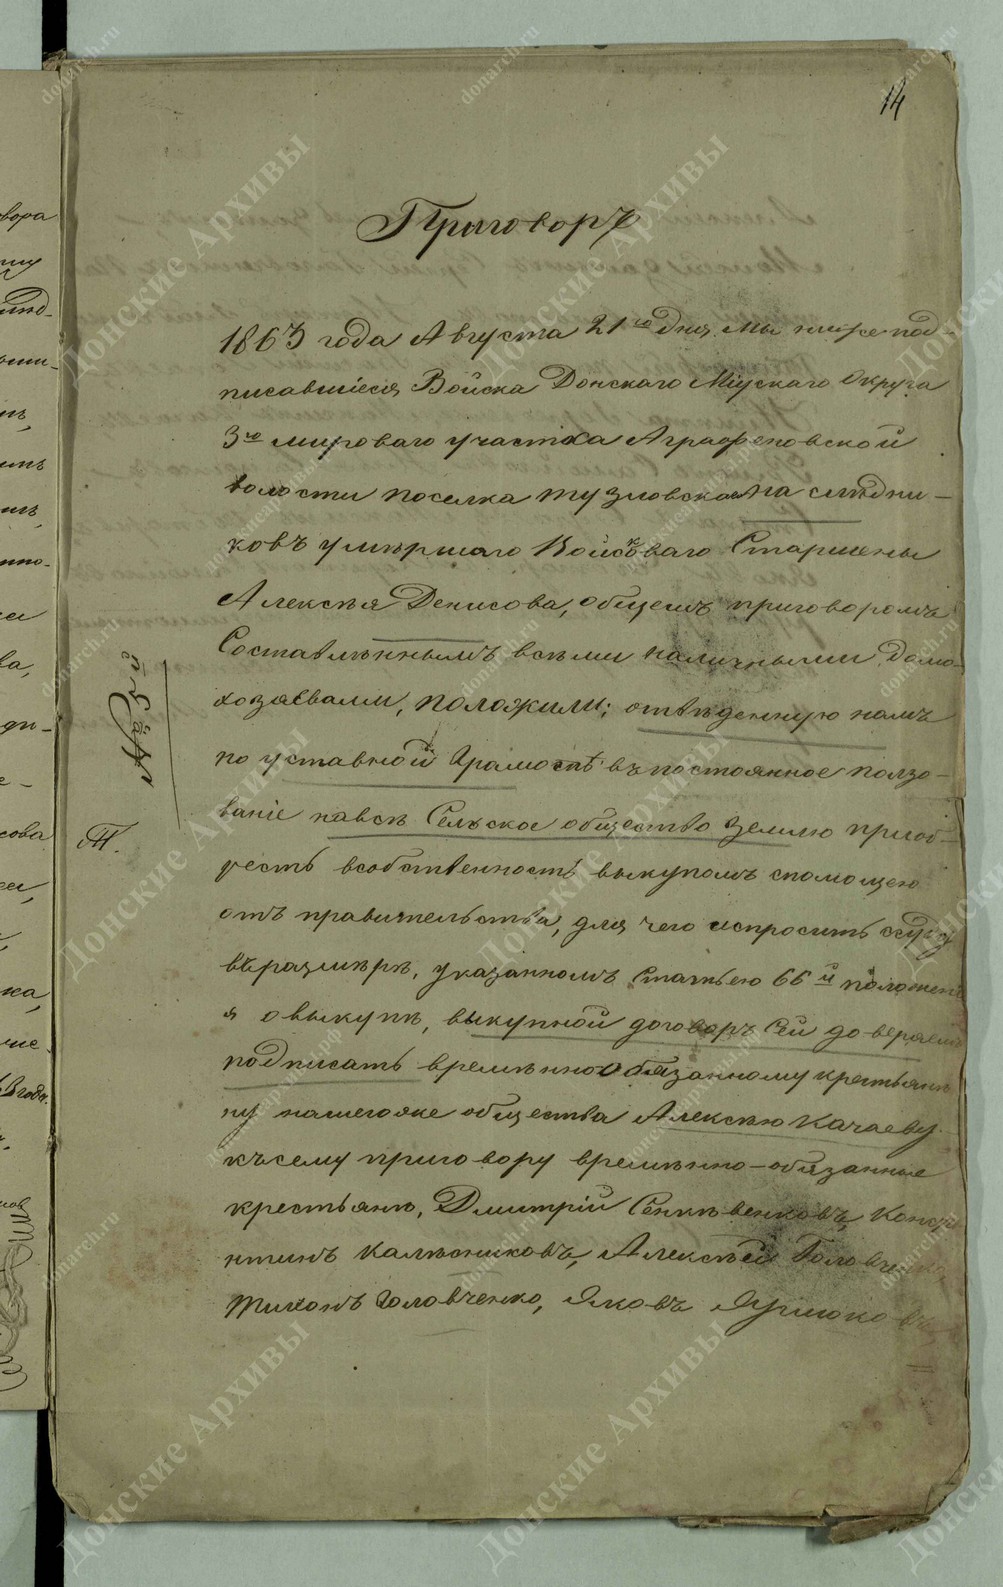 14
Приговоръ
1863 года Августа 21го дня, мы нижепод-
писавшіеся Войска Донскаго Міускаго Округа
3го мироваго участка Аграфеновской
волости поселка Тузловскаго наслѣдни-
ковъ умѣршаго Войсковаго Старшены
Алексѣя Денисова, общемъ приговоромъ
Составлѣннымъ всѣми наличными домо-
хозаевами, положили; отвѣденную намъ
по уставной Грамотѣ въ постоянное ползо-
ваніе навсѣ Сельское общество землю приоб-
рѣсть всобственность выкупомъ спомощею
отъ правительства, для чего испросить ссуду
въ размѣрѣ, указанномъ Статьею 66й положені
я о выкупѣ, выкупной договоръ сей доверяемъ
подписать времѣннообязанному крестьяни
ну нашегоже общества Алексѣю Качаеву.
къ сему приговору времѣнно-обязанные
крестьянѣ, Дмитрій Сенкѣвенковъ, Конста
нтинъ Калѣсниковъ, Алексѣй Головченко,
Тихонъ Головченко, Яковъ
Т.